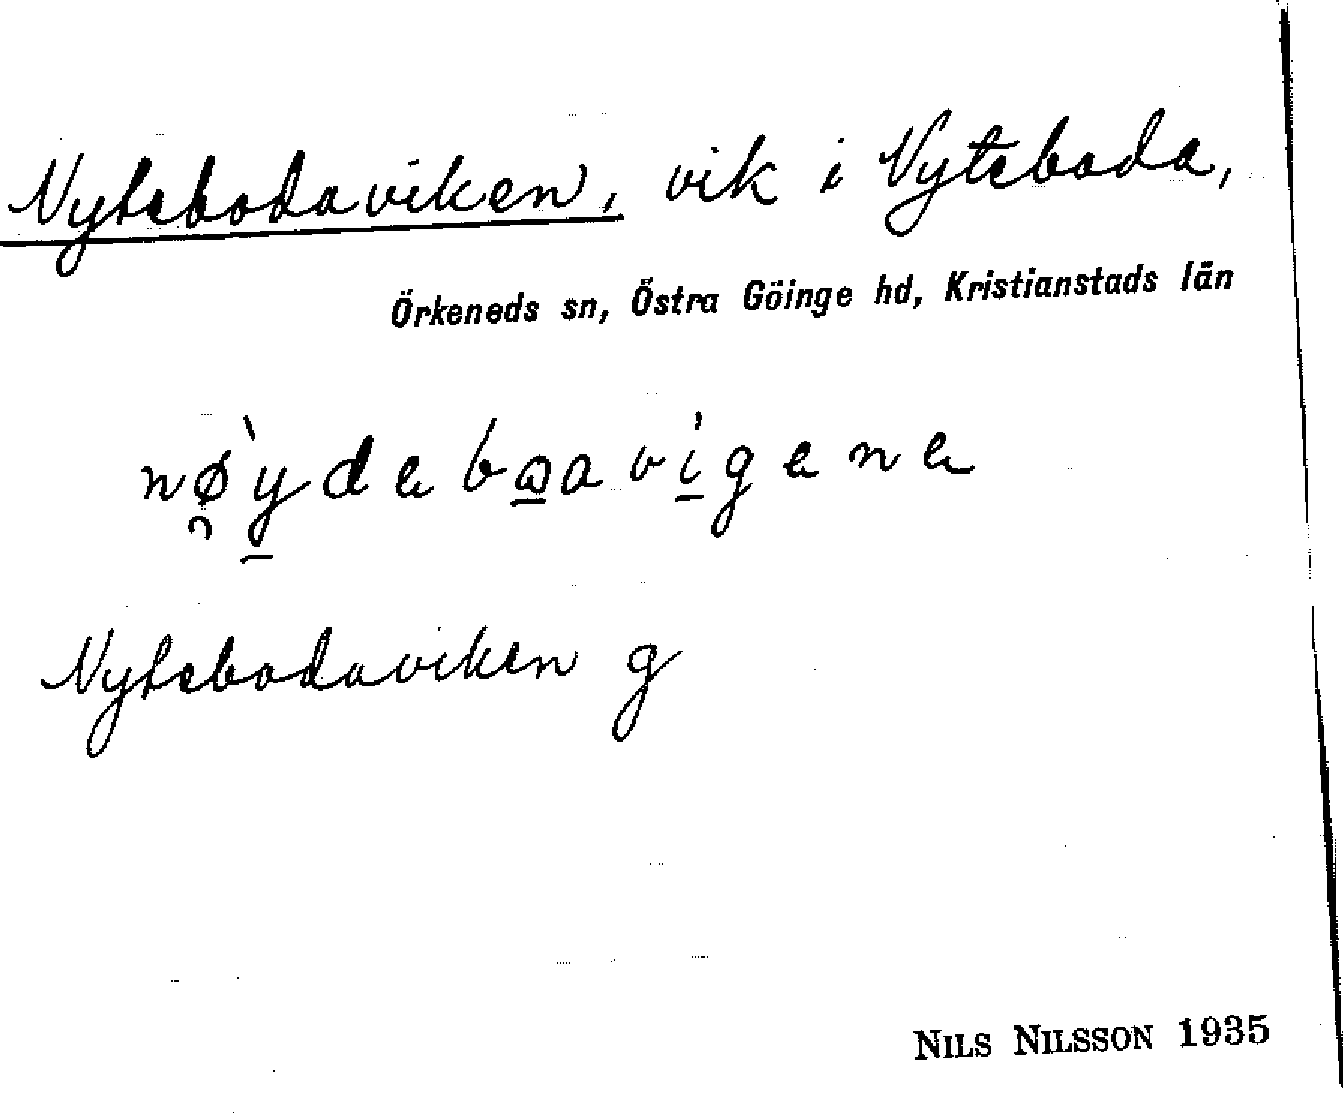 Nytebodaviken, vik i Nyteboda,
Örkeneds sn, Östra Göinge hd, Kristianstads län
nø̯̀y̱debɷ̱avi̱̍gena
Nytebodaviken g
NILS NILSSON 1935